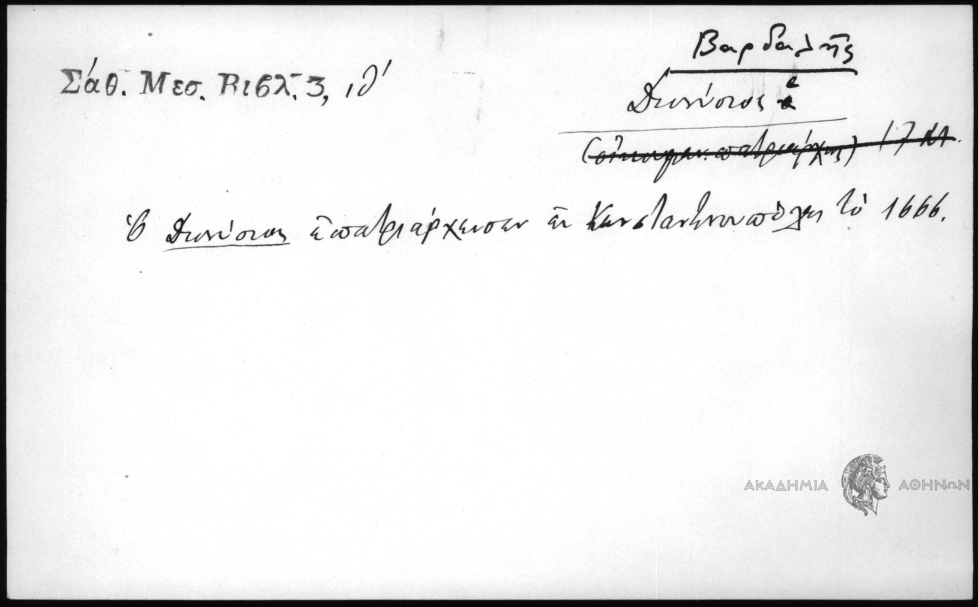 Βαρδαλῆς
Σάθ. Μεσ. Βιβλ. 3, ιθ´
Διονύσιος
(οἰκουμεν. πατριάρχης)
Ὁ Διονύσιος ἐπατριάρχευσεν ἐν Κωνσταντινουπόλει τὸ 1666.
ΑΚΑΔΗΜΙΑ ΑΘΗΝΩΝ